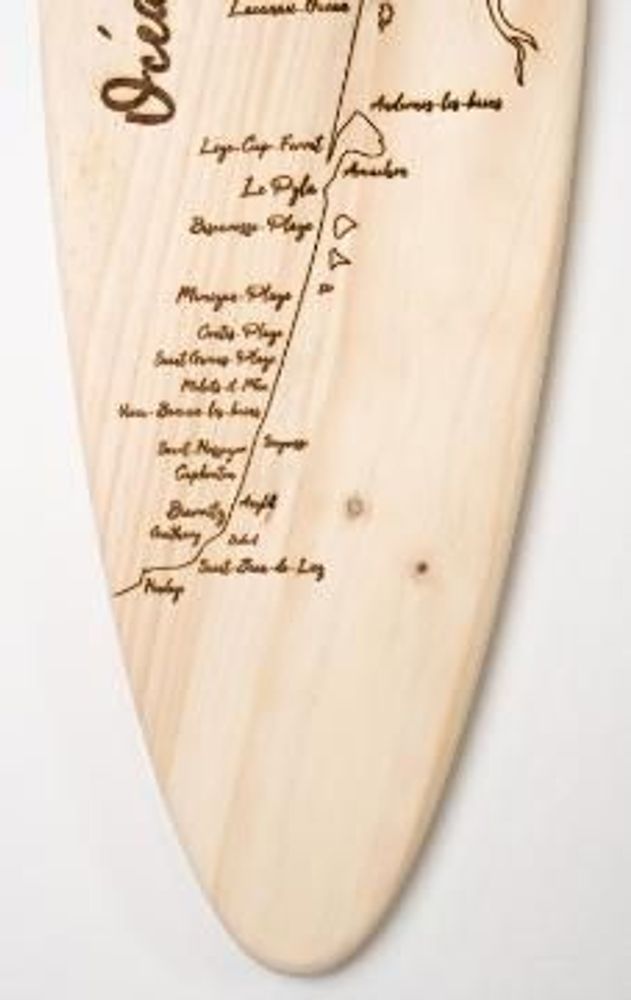 Lacanau-Océan
Océa
Andernos-les-bains
Lège-Cap-Ferret
Arcachon
Le Pyla
Biscarrosse-Plage
Mimizan-Plage
Contis-Plage
Saint Girons Plage
Moliets et Maa
Vieux-Boucau-les-bains
Saint-Nazaire
Seignosse
Capbreton
Anglet
Biarritz
Guéthary
Bidart
Saint-Jean-de-Luz
Hendaye